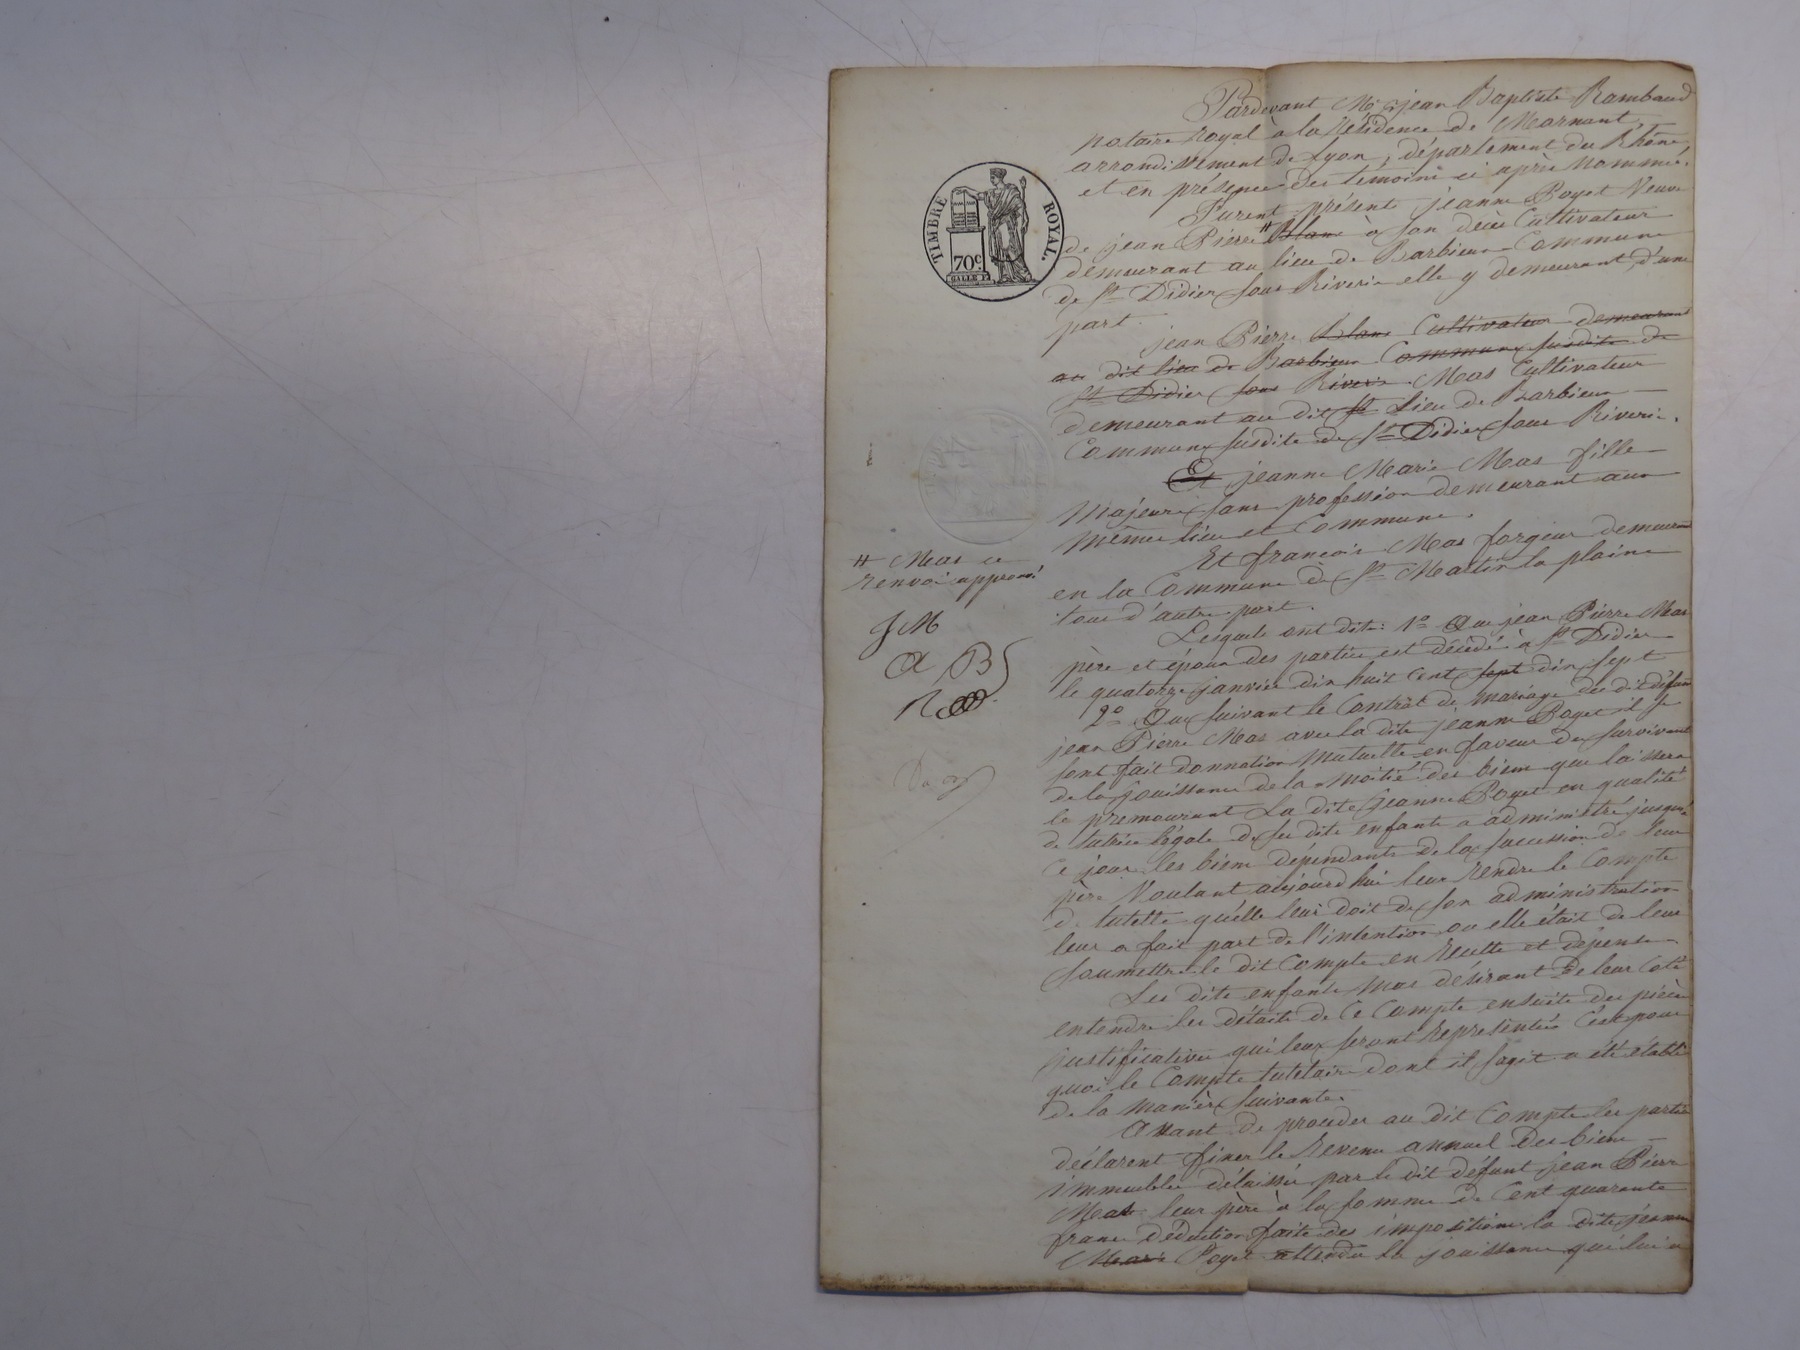 TIMBRE ROYAL.
70c
Pardevant Me jean Baptiste Rambaud
notaire royal à la résidence de Mornant,
arrondissement de Lyon, département du Rhône
et en présence des témoins ci après nommés.
Furent présent jeanne Poyet Veuve
de jean Pierre # Blanc à son décès Cultivateur
demeurant au lieu de Barbieux Commune
de St Didier sous Riverie elle y demeurant, d'une
part.
jean Pierre Blanc Cultivateur demeurant
au dit lieu de Barbieux Commune susdite de
St Didier sous Riverie Mas Cultivateur
demeurant au dit St Lieu de Barbieux
Commune susdite de St Didier sous Riverie.
Et jeanne Marie Mas fille
Majeure sans profession demeurant aux
Mêmes lieu et Commune.
Et francois Mas forgeur demeurant
en la Commune de St Martin la plaine
tous d'autre part.
# Mas ce
renvoi approuvé
J M
B
Lesquels ont dit: 1o Que jean Pierre Mas
père et époux des parties est décédé à St Didier
le quatorze janvier dix huit cent sept dix sept
2o Que suivant le Contrat de mariage du dit défunt
jean Pierre Mas avec la dite jeanne Poyet il se
sont fait donnation Mutuelle en faveur du survivant
de la jouissance de la moitié des biens que laissera
le premourant La dite jeanne Poyet en qualité
de tutrice légale de ses dits enfants a administré jusqu'à
Ce jour les biens dépendants de la succession de leur
père Voulant aujourd'hui leur rendre le Compte
de tutelle qu'elle leur doit de son administration
leur a fait part de l'intention ou elle était de leur
soumettre le dit Compte en Recette et dépense.
Les dits enfants Mas désirant de leur Coté
entendre les détails de Ce Compte ensuite des pièces
justificatives qui leur seront représentées C'est pour
quoi le Compte tutélaire dont il s'agit a été établi
de la Manière suivante.
Avant de procéder au dit Compte les parties
déclarent fixer le Revenu annuel des biens
immeubles délaissés par le dit défunt jean Pierre
Mas leur père à la somme de Cent quarante
francs déduction faite des impositions la dite jeanne
Marie Poyet attendu la jouissance qui lui a